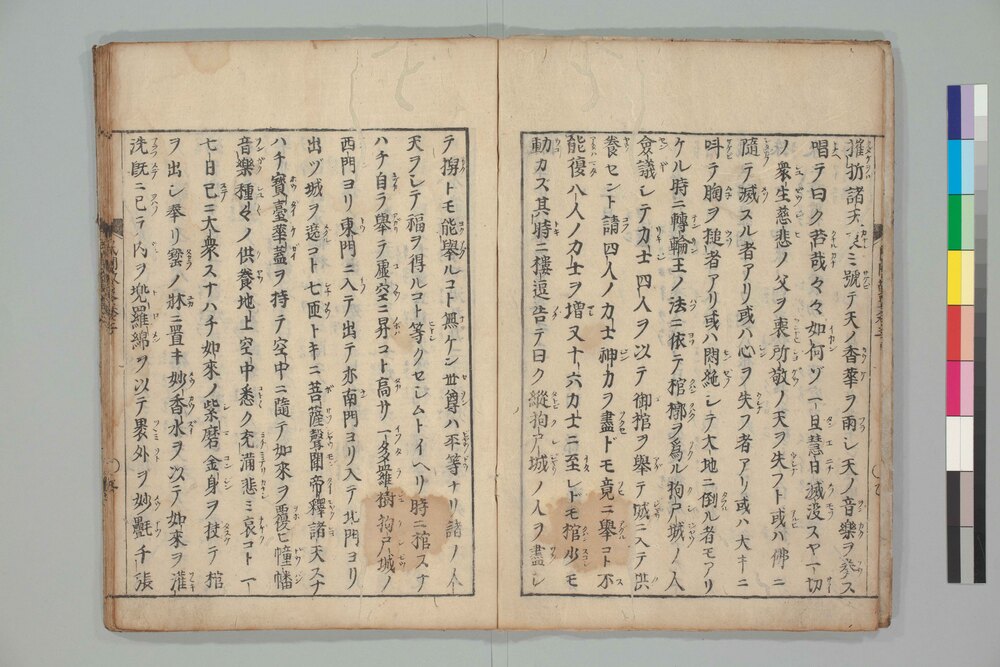 摧扮諸天人ミ號テ天ノ香華ヲ雨シ天ノ音樂ヲ奏ス
唱テ曰ク苦哉々々如何ゾ一旦慧日滅没スヤ一切
ノ衆生慈悲ノ父ヲ喪所敬ノ天ヲ失フト或ハ佛ニ
隨テ滅スル者アリ或ハ心ヲ失フ者アリ或ハ大キニ
呌テ胸ヲ搥者アリ或ハ悶絶シテ大地ニ倒ル者モアリ
ケル時ニ轉輪王ノ法ニ依テ棺槨ヲ爲ル拘尸城ノ人
僉議シテ力士四人ヲ以テ御棺ヲ舉テ城ニ入テ供
養セント請四人ノ力士神力ヲ盡ドモ竟ニ舉コト不
能復八人ノ力士ヲ増又十六力士ニ至レドモ棺少モ
動カズ其時ニ樓逗告テ曰ク縱拘尸城ノ人ヲ盡シ
テ捌トモ能舉ルコト無ケン世尊ハ平等ナリ諸ノ人
天ヲシテ福ヲ得ルコト等クセシムトイヘリ時ニ棺スナ
ハチ自ラ舉テ虚空ニ昇コト高サ一多羅樹拘尸城ノ
西門ヨリ東門ニ入テ出テ亦南門ヨリ入テ北門ヨリ
出ツ城ヲ遶コト七匝トキニ菩薩聲聞帝釋諸天スナ
ハチ寳臺華蓋ヲ持テ空中ニ隨テ如來ヲ覆ヒ幢幡
音樂種々ノ供養地上空中悉ク充満悲ミ哀コト一
七日已ニ大衆スナハチ如來ノ紫磨金身ヲ扶テ棺
ヲ出シ奉リ寳ノ牀ニ置キ妙香水ヲ以テ如來ヲ灌
洗既ニ已テ内ヲ兠羅綿ヲ以テ褁外ヲ妙氎千張